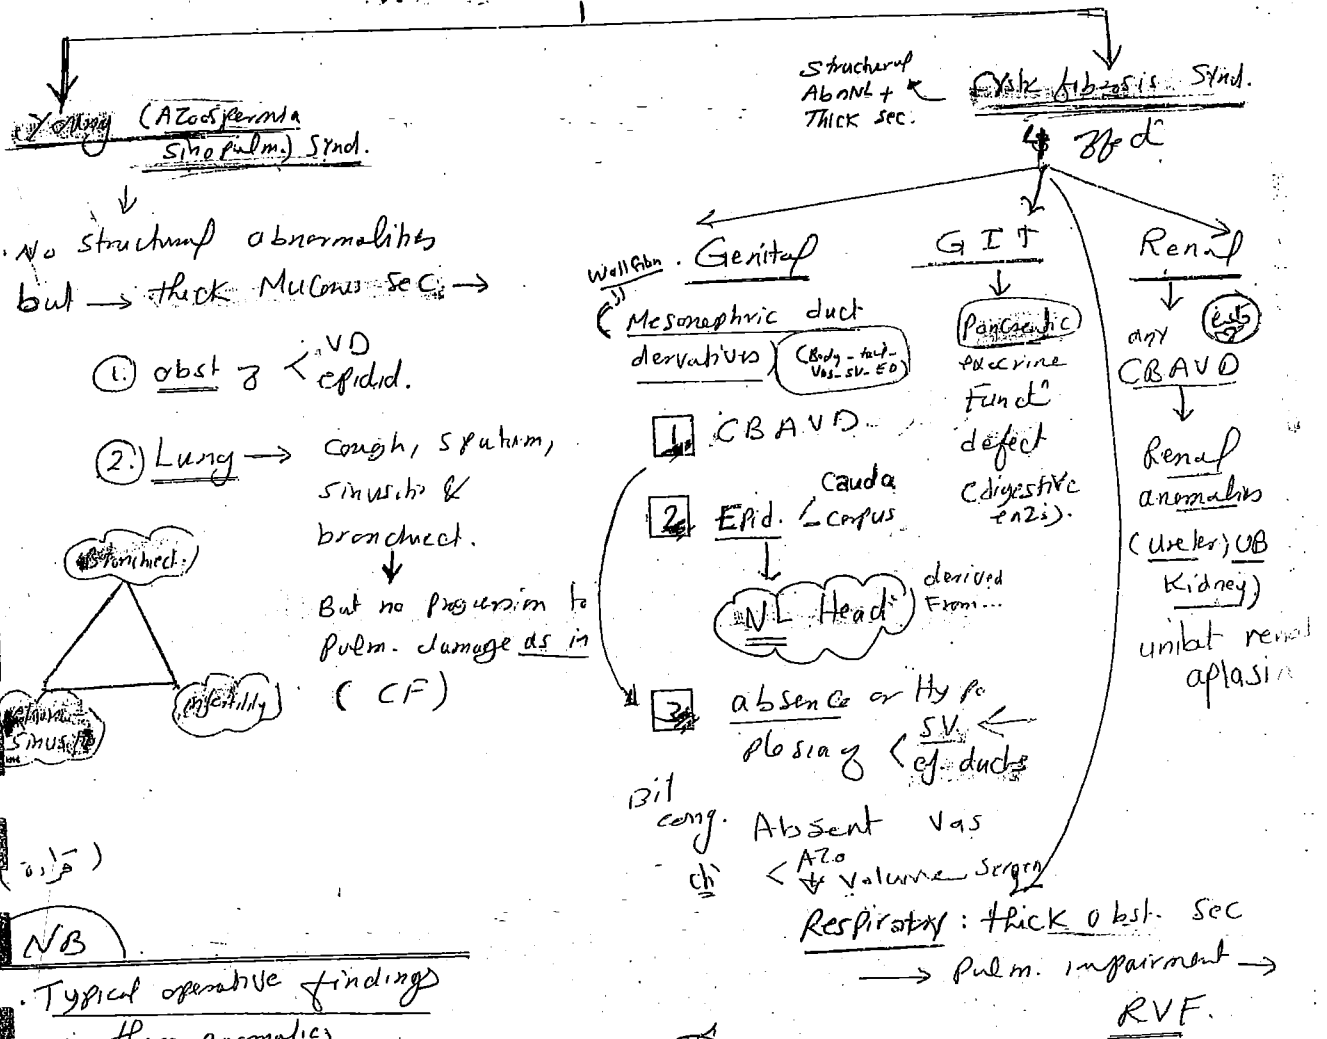 Young (Azoospermia
sinopulm.) Synd.
. No structural abnormalities
but → thick Mucous sec. →
1. obst of < VD
epidid.
2. Lung → cough, sputum,
sinusitis &
bronchiect.
But no progression to
Pulm. damage as in
( CF )
Bronchiect.
infertility
sinusitis
NB
. Typical operative findings
Structural
AbnNL +
Thick sec.
Cystic fibrosis Synd.
4
. Genital
(Mesonephric duct
derivatives) (Body - tail -
Vas - SV - ED)
1. CBAVD.
2. Epid. < Cauda
corpus
NL Head derived
From...
3. absence or Hypo
plasia of < SV. ←
ef. ducts
Bil
cong. Absent Vas
ch < Azo
↓ Volume
GIT
Pancreatic
exocrine
Functⁿ
defect
(digestive
enzs).
Renal
any
CBAVD
Renal
anomalies
(Ureter, UB
Kidney)
unilat renal
aplasia
Respiratory : thick obst. sec
→ Pulm. impairment →
RVF.